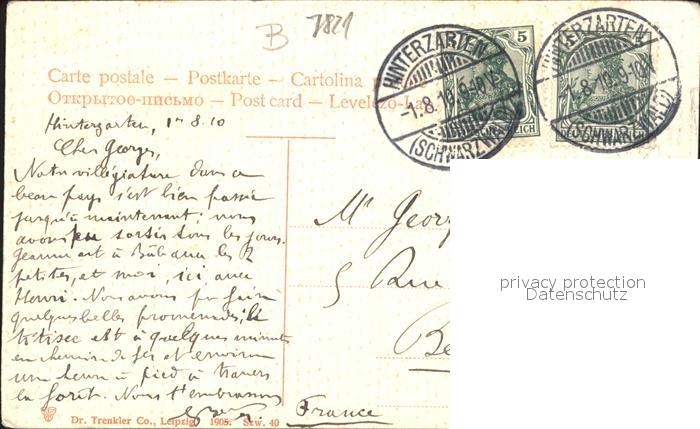 B 7821
Carte postale — Postkarte — Cartolina
Открытое-письмо — Post card — Levelezö-La
HINTERZARTEN
-1.8.10.9-10V.
(SCHWARZWALD)
5
DEUTSCHES REICH
HINTERZARTEN
-1.8.10.9-10V.
(SCHWARZWALD)
Hinterzarten, 1er 8.10
Cher Georges,
Notre villégiature dans ce
beau pays s'est bien passée
jusqu'à maintenant; nous
avons pu sortir tous les jours.
Jeanne est à Bâle avec les 2
petites, et moi, ici avec
Henri. Nous avons pu faire
quelques belles promenades; le
titisee est à quelques minutes
en chemin de fer et environ
une heure à pied à travers
la forêt. Nous t'embrassons
Mr Georg
5 Rue
Be
France
privacy protection
Datenschutz
Dr. Trenkler Co., Leipzig. 1905. Szw. 40